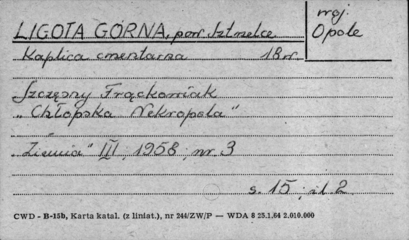 LIGOTA GÓRNA, pow. Strzelce
woj. Opole
Kaplica cmentarna 18 w.
Szczęsny Frąckowiak
„Chłopska Nekropola"
„Ziemia" III, 1958, nr. 3
s. 15; il. 2
CWD - B-15b, Karta katal. (z liniat.), nr 244/ZW/P — WDA 8 25.1.64 2.010.000